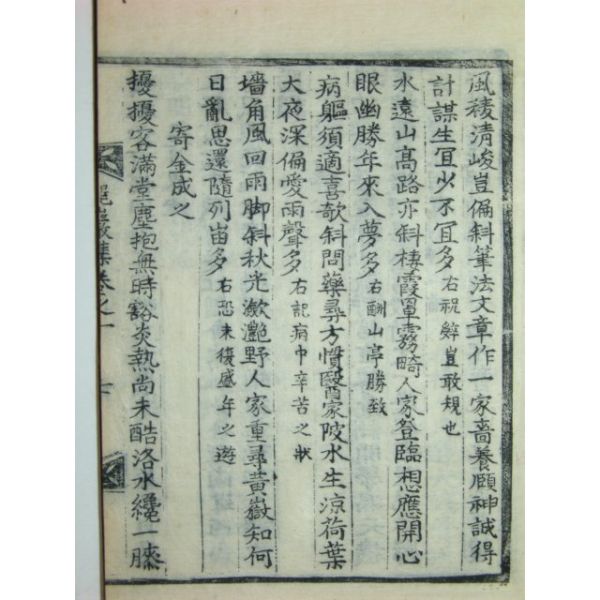 風稜清峻豈偏斜筆法文章作一家嗇養頤神誠得
計謀生冝少不冝多右祝觧豈敢規也
水遠山高路亦斜棲霞罩霧畸人家登臨想應開心
眼幽勝年來入夢多右酬山亭勝致
病軀須適喜欹斜問藥尋方慣醫家陂水生涼荷葉
大夜深偏愛雨聲多右記病中辛苦之狀
墻角風回雨脚斜秋光瀲灧野人家重尋黃嶽知何
日亂思還隨列宙多右恐未復盛年之遊
寄金成之
擾擾客滿堂塵抱無時豁炎熱尚未酷洛水纔一膝
巖集卷之一